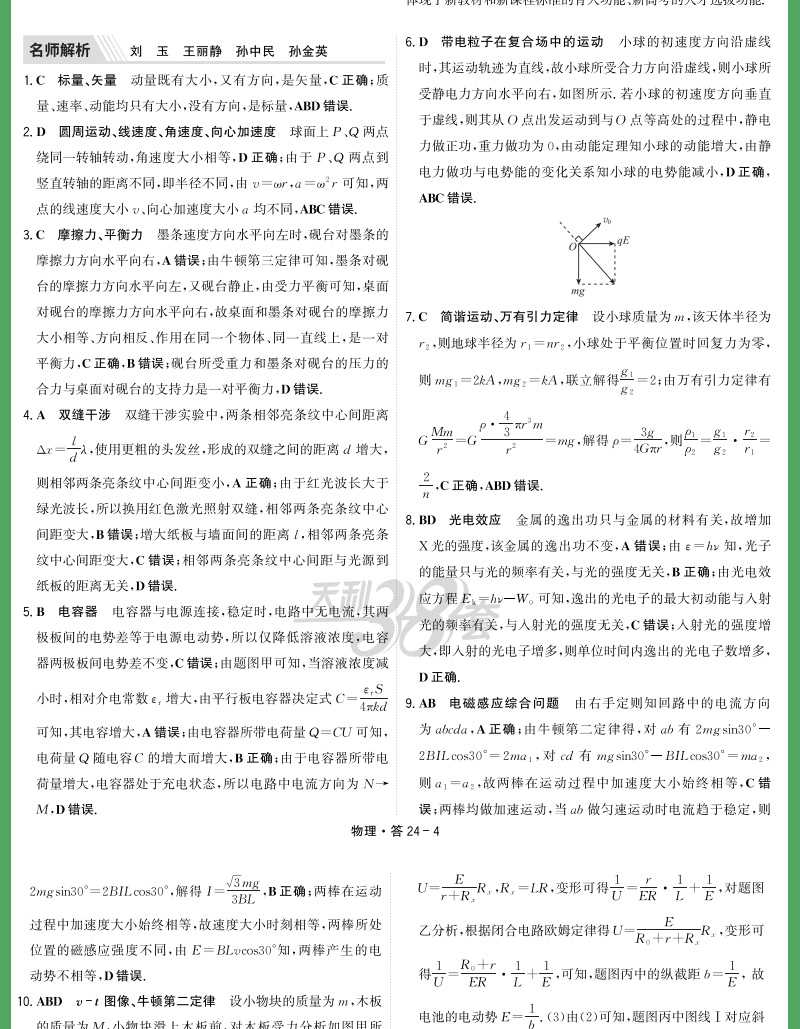 体现了新教材和新课程标准的育人功能、新高考的人才选拔功能.
名师解析 刘 玉 王丽静 孙中民 孙金英
1. C 标量、矢量 动量既有大小,又有方向,是矢量,C 正确;质
量、速率、动能均只有大小,没有方向,是标量,ABD 错误.
2. D 圆周运动、线速度、角速度、向心加速度 球面上 P、Q 两点
绕同一转轴转动,角速度大小相等,D 正确;由于 P、Q 两点到
竖直转轴的距离不同,即半径不同,由 v=ωr,a=ω²r 可知,两
点的线速度大小 v、向心加速度大小 a 均不同,ABC 错误.
3. C 摩擦力、平衡力 墨条速度方向水平向左时,砚台对墨条的
摩擦力方向水平向右,A 错误;由牛顿第三定律可知,墨条对砚
台的摩擦力方向水平向左,又砚台静止,由受力平衡可知,桌面
对砚台的摩擦力方向水平向右,故桌面和墨条对砚台的摩擦力
大小相等、方向相反、作用在同一个物体、同一直线上,是一对
平衡力,C 正确,B 错误;砚台所受重力和墨条对砚台的压力的
合力与桌面对砚台的支持力是一对平衡力,D 错误.
4. A 双缝干涉 双缝干涉实验中,两条相邻亮条纹中心间距离
Δx=l/d λ,使用更粗的头发丝,形成的双缝之间的距离 d 增大,
则相邻两条亮条纹中心间距变小,A 正确;由于红光波长大于
绿光波长,所以换用红色激光照射双缝,相邻两条亮条纹中心
间距变大,B 错误;增大纸板与墙面间的距离 l,相邻两条亮条
纹中心间距变大,C 错误;相邻两条亮条纹中心间距与光源到
纸板的距离无关,D 错误.
5. B 电容器 电容器与电源连接,稳定时,电路中无电流,其两
极板间的电势差等于电源电动势,所以仅降低溶液浓度,电容
器两极板间电势差不变,C 错误;由题图甲可知,当溶液浓度减
小时,相对介电常数 εr 增大,由平行板电容器决定式 C=εrS/4πkd
可知,其电容增大,A 错误;由电容器所带电荷量 Q=CU 可知,
电荷量 Q 随电容 C 的增大而增大,B 正确;由于电容器所带电
荷量增大,电容器处于充电状态,所以电路中电流方向为 N→
M,D 错误.
6. D 带电粒子在复合场中的运动 小球的初速度方向沿虚线
时,其运动轨迹为直线,故小球所受合力方向沿虚线,则小球所
受静电力方向水平向右,如图所示. 若小球的初速度方向垂直
于虚线,则其从 O 点出发运动到与 O 点等高处的过程中,静电
力做正功,重力做功为 0,由动能定理知小球的动能增大,由静
电力做功与电势能的变化关系知小球的电势能减小,D 正确,
ABC 错误.
v₀
O qE
mg
7. C 简谐运动、万有引力定律 设小球质量为 m,该天体半径为
r₂,则地球半径为 r₁=nr₂,小球处于平衡位置时回复力为零,
则 mg₁=2kA,mg₂=kA,联立解得 g₁/g₂=2;由万有引力定律有
G Mm/r²=G (ρ·4/3 πr³m)/r²=mg,解得 ρ=3g/4Gπr,则 ρ₁/ρ₂=g₁/g₂·r₂/r₁=
2/n,C 正确,ABD 错误.
8. BD 光电效应 金属的逸出功只与金属的材料有关,故增加
X 光的强度,该金属的逸出功不变,A 错误;由 ε=hν 知,光子
的能量只与光的频率有关,与光的强度无关,B 正确;由光电效
应方程 Ek=hν−W₀ 可知,逸出的光电子的最大初动能与入射
光的频率有关,与入射光的强度无关,C 错误;入射光的强度增
大,即入射的光电子增多,则单位时间内逸出的光电子数增多,
D 正确.
9. AB 电磁感应综合问题 由右手定则知回路中的电流方向
为 abcda,A 正确;由牛顿第二定律得,对 ab 有 2mgsin30°−
2BILcos30°=2ma₁,对 cd 有 mgsin30°−BILcos30°=ma₂,
则 a₁=a₂,故两棒在运动过程中加速度大小始终相等,C 错
误;两棒均做加速运动,当 ab 做匀速运动时电流趋于稳定,则
天利38套
物理·答 24-4
2mgsin30°=2BILcos30°,解得 I=√3mg/3BL,B 正确;两棒在运动
过程中加速度大小始终相等,故速度大小时刻相等,两棒所处
位置的磁感应强度不同,由 E=BLvcos30°知,两棒产生的电
动势不相等,D 错误.
10. ABD v-t 图像、牛顿第二定律 设小物块的质量为 m,木板
的质量为 M,小物块滑上木板前,对木板受力分析如图甲所
U=E/(r+Rx) Rx,Rx=LR,变形可得 1/U=r/ER·1/L+1/E,对题图
乙分析,根据闭合电路欧姆定律得 U=E/(R₀+r+Rx) Rx,变形可
得 1/U=(R₀+r)/ER·1/L+1/E,可知,题图丙中的纵截距 b=1/E,故
电池的电动势 E=1/b.(3)由(2)可知,题图丙中图线Ⅰ对应斜